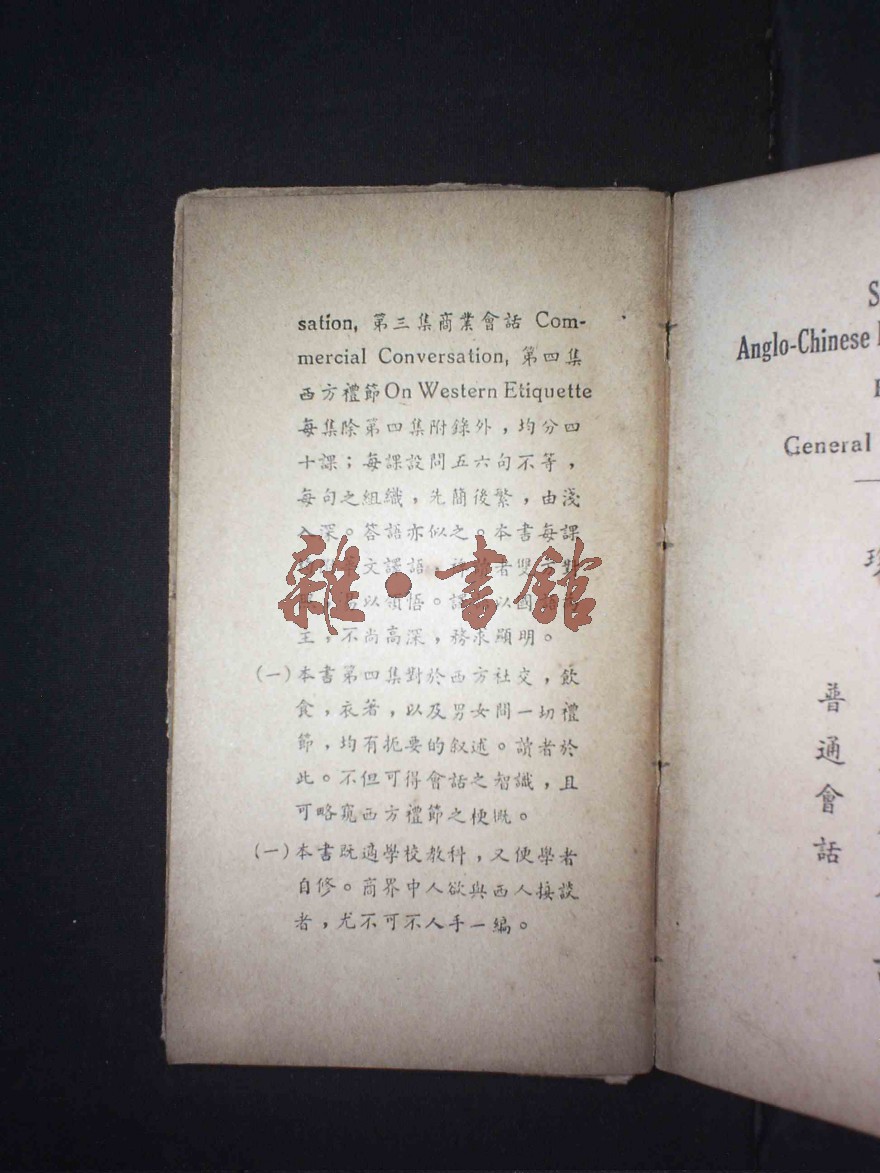 sation, 第三集商業會話 Com-
mercial Conversation, 第四集
西方禮節On Western Etiquette
每集除第四集附錄外，均分四
十課；每課設問五六句不等，
每句之組織，先簡後繁，由淺
入深。答語亦似之。本書每課
文譯語，者
以領悟。以國
主，不尚高深，務求顯明。
(一)本書第四集對於西方社交，飲
食，衣著，以及男女間一切禮
節，均有扼要的叙述。讀者於
此。不但可得會話之智識，且
可略窺西方禮節之梗概。
(一)本書既適學校教科，又便學者
自修。商界中人欲與西人接談
者，尤不可不人手一編。
雜·書館
Anglo-Chinese
General
普通會話